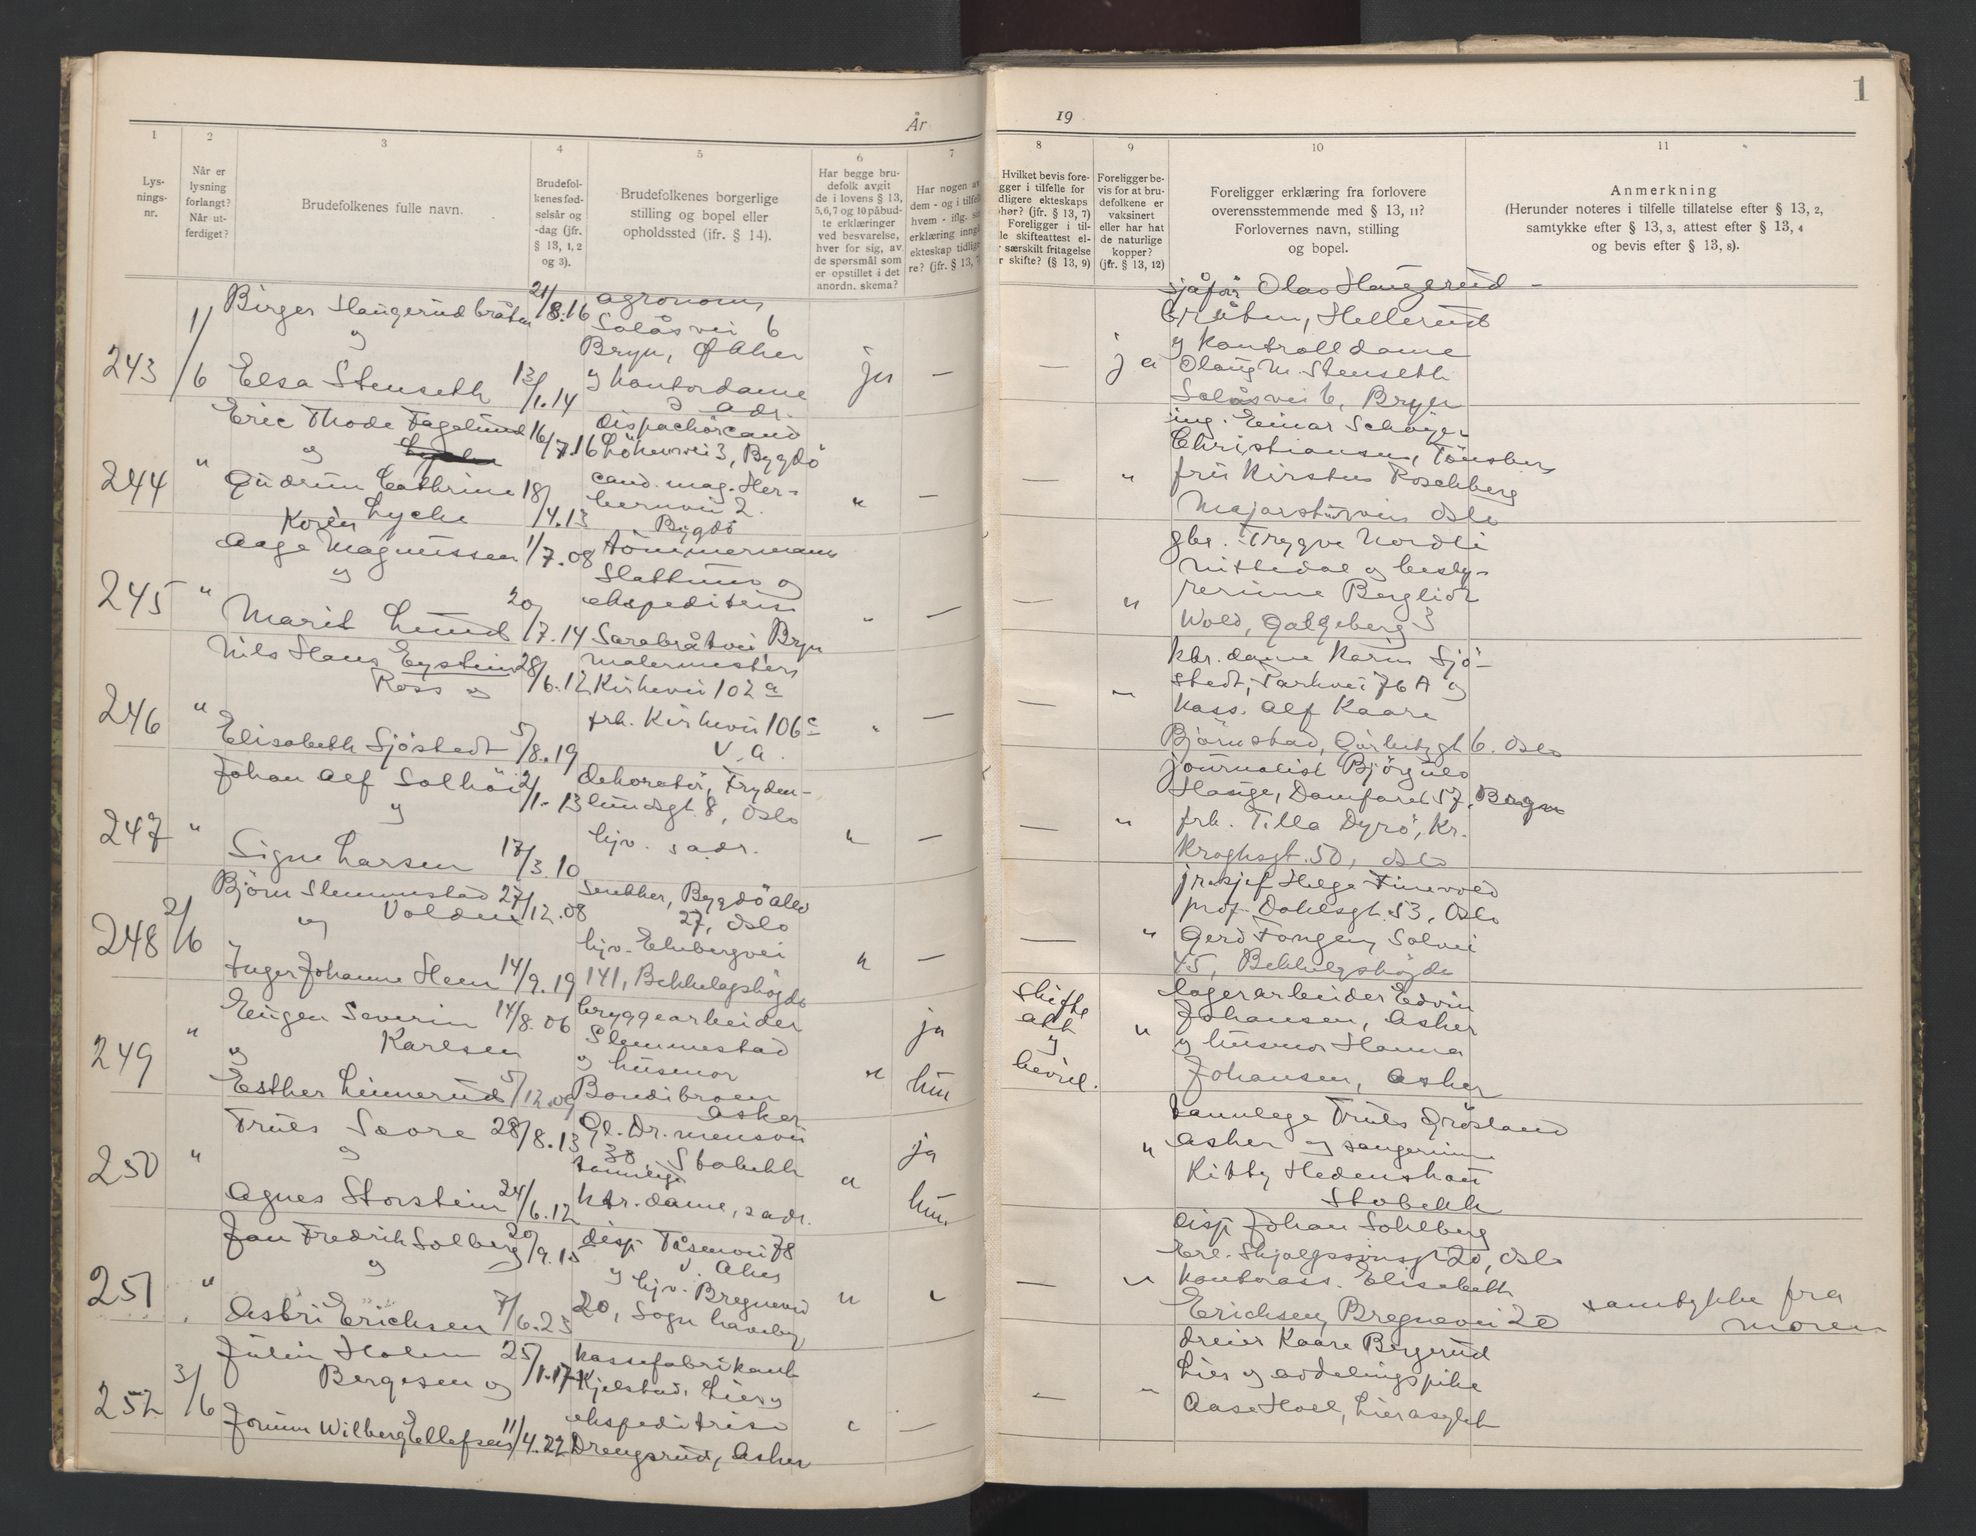 1
År
19
1
2
3
4
5
6
7
8
9
10
11
Lys-
nings-
nr.
Når er
lysning
forlangt?
Når ut-
ferdiget?
Brudefolkenes fulle navn.
Brudefol-
kenes fød-
selsår og
-dag (jfr.
§ 13, 1, 2
og 3).
Brudefolkenes borgerlige
stilling og bopel eller
opholdssted (ifr. § 14).
Har begge bru-
defolk avgit
de i lovens § 13,
5, 6, 7 og 10 påbud-
te erklæringer
ved besvarelse,
hver for sig, av
de spørsmål som
er opstillet i det
anordn. skema?
Har nogen av
dem - og i tilfelle
hvem - iflg. sin
erklæring inngått
ekteskap tidlige-
re? (jfr. § 13, 7
Hvilket bevis fore-
gger i tilfelle for
dligere ekteskaps
phør? (jfr. § 13, 7)
Foreligger i til-
le skifteattest el-
r særskilt fritagelse
r skifte? (§ 13, 9)
Foreligger be-
vis for at bru-
defolkene er
vaksinert
eller har hat
de naturlige
kopper?
(jfr. § 13, 12)
Foreligger erklæring fra forlovere
overensstemmende med § 13, 11?
Forlovernes navn, stilling
og bopel.
Anmerkning
(Herunder noteres i tilfelle tillatelse efter § 13, 2,
samtykke efter § 13, 3, attest efter § 13, 4
og bevis efter § 13, 8).
243
1/6
Birger Haugerudbråten
og
Elsa Stenseth
21/8.16
13/1.14
agronom
Solåsvei 6
Bryn, Ø Aker
og kontordame
s adr.
ja
—
—
ja
sjåfør Olav Haugerud-
bråten, Hellerud
og kontrolldame
Olaug M. Stenseth
Solåsvei 6, Bryn
244
"
Eric Thode Fagelund
og
Gudrun Cathrine
Lyche
16/7.16
18/4.13
dispachørcand
Løkenvei 3, Bygdö
cand. mag. Her-
bernvei 2.
Bygdö
"
—
—
"
ing. Einar Schøyer
Christiansen, Tønsberg
fru Kirsten Roschberg
Majorstuveien Oslo
245
"
Korén
Aage Magnussen
og
Marit Lund
1/7.08
20/7.14
tömmermann
Slattum og
ekspeditrise
Sarabråtvei, Bryn
"
—
—
"
gbr. Trygve Nordli
Nittedal og besty-
rerinne Bergliot
Wold, Galgeberg 3
246
"
Nils Hans Eystein
Ross og
Elisabeth Sjöstedt
28/6.12
5/8.19
malermester
Kirkevei 102 a
frk. Kirkevei 106 c
V. A.
"
—
—
"
ktr. dame Karin Sjö-
stedt, Parkvei 76 A og
kass. Alf Kaare
Björnstad, 6. Oslo
247
"
Johan Alf Solhöi
og
Signe Larsen
2/1.13
17/3.10
dekoratör, Fryden-
lundsgt. 8, Oslo
hjv. s adr.
"
—
—
"
journalist Björgulv
Hauge, Damfaret 57, Bryn
frk. Tilla Dyrö, Kr.
Kroghsgt. 50, Oslo
248
2/6
Björn Slemmestad
og Volden
Inger Johanne Heen
27/12.08
14/9.19
snekker, Bygdö allé
27, Oslo
hjv. Ekebergvei
141, Bekkelagshögda
"
—
—
"
Helge Finevold
prof. Dahlsgt. 53, Oslo
Gerd Fongen, Solvei
45, Bekkelagshögda
249
"
Eugen Severin
Karlsen
og
Esther Linnerud
14/8.06
5/12.09
bryggearbeider
Slemmestad
og husmor
Bondibroen
Asker
"
ja
hun
skifte
att
og
bevil.
"
lagerarbeider Edvin
Johansen, Asker
og husmor Hanna
Johansen, Asker
250
"
Truls Sæore
og
Agnes Storstein
28/8.13
24/6.12
Gl. Dr. mensvei
38, Stabekk
tannlege
ktr. dame, s adr.
"
ja
hun
"
tannlege Truls Grösland
Asker og sangerinne
Kitty Hedenskau
Stabekk
251
"
Jan Fredrik Solberg
og
Astri Erichsen
20/9.15
7/6.23
disp Tåsenvei 78
V. Aker
og hjv. Bregnevei
20, Sogn haveby
"
—
"
disp Johan Sohlberg
Erl. Skjalgssönsgt 20, Oslo
kontorass. Elisabeth
Erichsen Bregnevei 20
samtykke fra
moren
252
3/6
Julin Holm
Bergesen og
Jorunn Wilberg Ellefsen
25/1.17
11/4.22
kassefabrikant
Kjelstad, Lier og
ekspeditrise
Drengsrud, Asker
"
—
—
"
dreier Kaare Bergerud
Lier og avdelingspike
Aase Hoel, Lierasylet